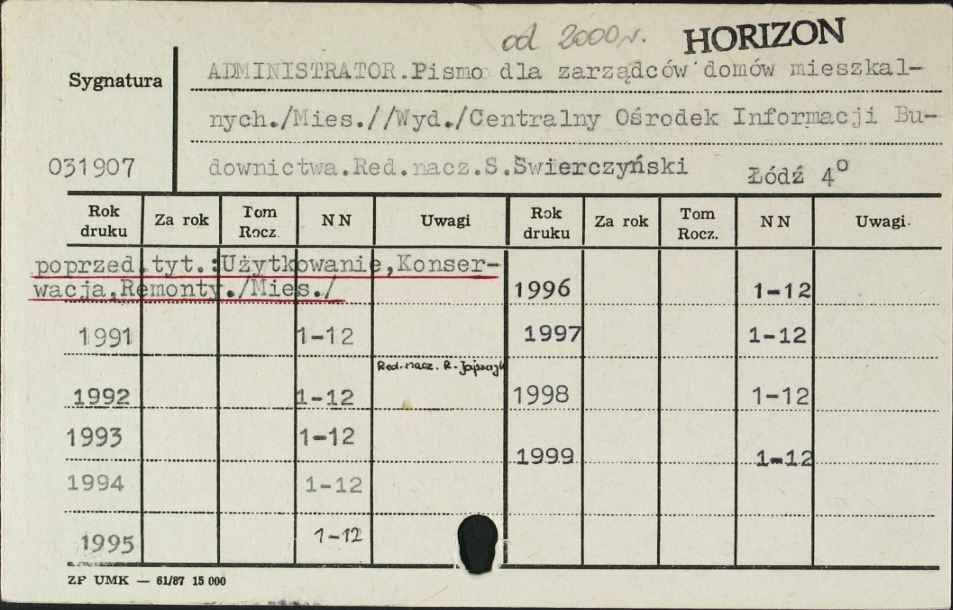 od 2000 r. HORIZON
Sygnatura
ADMINISTRATOR.Pismo dla zarządców domów mieszkal-
nych./Mies.//Wyd./Centralny Ośrodek Informacji Bu-
031907
downictwa.Red.nacz.S.Świerczyński Łódź 4°
Rok druku Za rok Tom Rocz. NN Uwagi Rok druku Za rok Tom Rocz. NN Uwagi
poprzed.tyt.:Użytkowanie,Konser-
wacja,Remonty./Mies./
1996 1-12
1991 1-12 1997 1-12
Red. nacz. R.
1992 1-12 1998 1-12
1993 1-12
1999 1-12
1994 1-12
1995 1-12
ZP UMK — 61/87 15 000